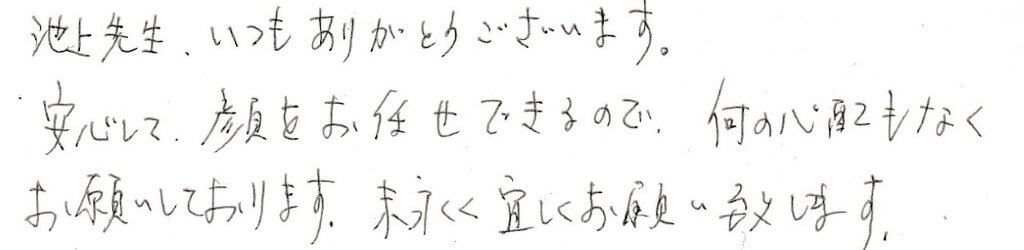 池上先生、いつもありがとうございます。
安心して、顔をお任せできるので、何の心配もなく
お願いしております。末永くく宜しくお願い致します。